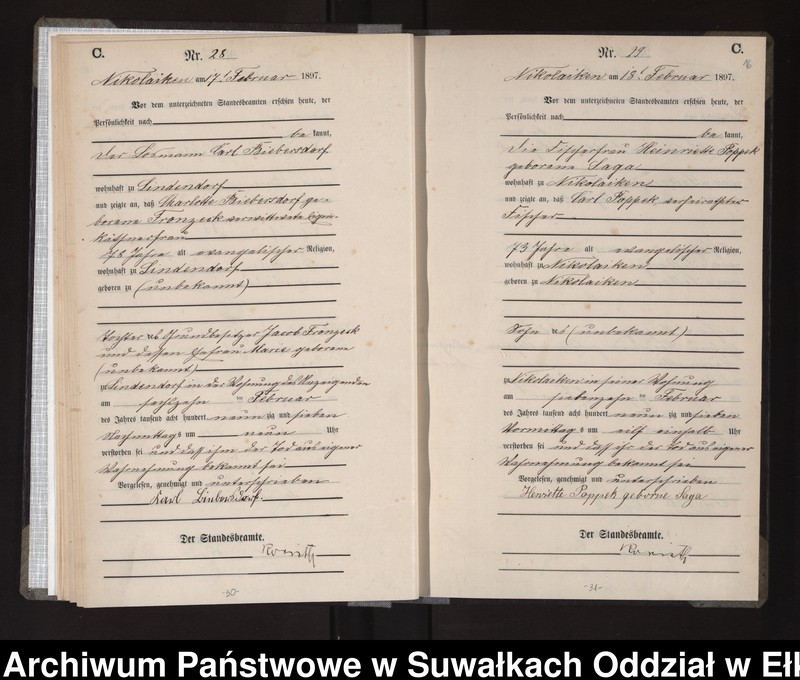 C.
Nr. 28
Nikolaiken am 17t Februar 1897.
Vor dem unterzeichneten Standesbeamten erschien heute, der
Persönlichkeit nach
be kannt,
der Losmann Carl Biebersdorf
wohnhaft zu Lindendorf
und zeigte an, daß Charlotte Biebersdorf ge-
borene Fronzeck verwittwete Eigen-
käthnerfrau
78 Jahre alt evangelischer Religion,
wohnhaft zu Lindendorf
geboren zu (unbekannt)
Tochter des Grundbesitzer Jacob Fronzeck
und dessen Ehefrau Marie geborene
(unbekannt)
zu Lindendorf in der Wohnung des Anzeigenden
am sechszehn ten Februar
des Jahres tausend acht hundert neun zig und sieben
Nachmittags um neun Uhr
verstorben sei und daß ihm der Tod aus eigener
Wahrnehmung bekannt sei
Vorgelesen, genehmigt und unterschrieben
Karl Biebersdorf
Der Standesbeamte.
-30-
Nr. 29
C.
16
Nikolaiken am 18t Februar 1897.
Vor dem unterzeichneten Standesbeamten erschien heute, der
Persönlichkeit nach
be kannt,
die Fischerfrau Heinriette Poppek
geborene Saga
wohnhaft zu Nikolaiken
und zeigte an, daß Carl Poppek verheiratheter
Fischer
73 Jahre alt evangelischer Religion,
wohnhaft zu Nikolaiken
geboren zu Nikolaiken
Sohn des (unbekannt)
zu Nikolaiken in seiner Wohnung
am siebenzehn ten Februar
des Jahres tausend acht hundert neun zig und sieben
Vormittags um eilf einhalb Uhr
verstorben sei und daß ihr der Tod aus eigener
Wahrnehmung bekannt sei
Vorgelesen, genehmigt und unterschrieben
Henriette Poppek geborne Saga
Der Standesbeamte.
-31-
Archiwum Państwowe w Suwałkach Oddział w Ełk